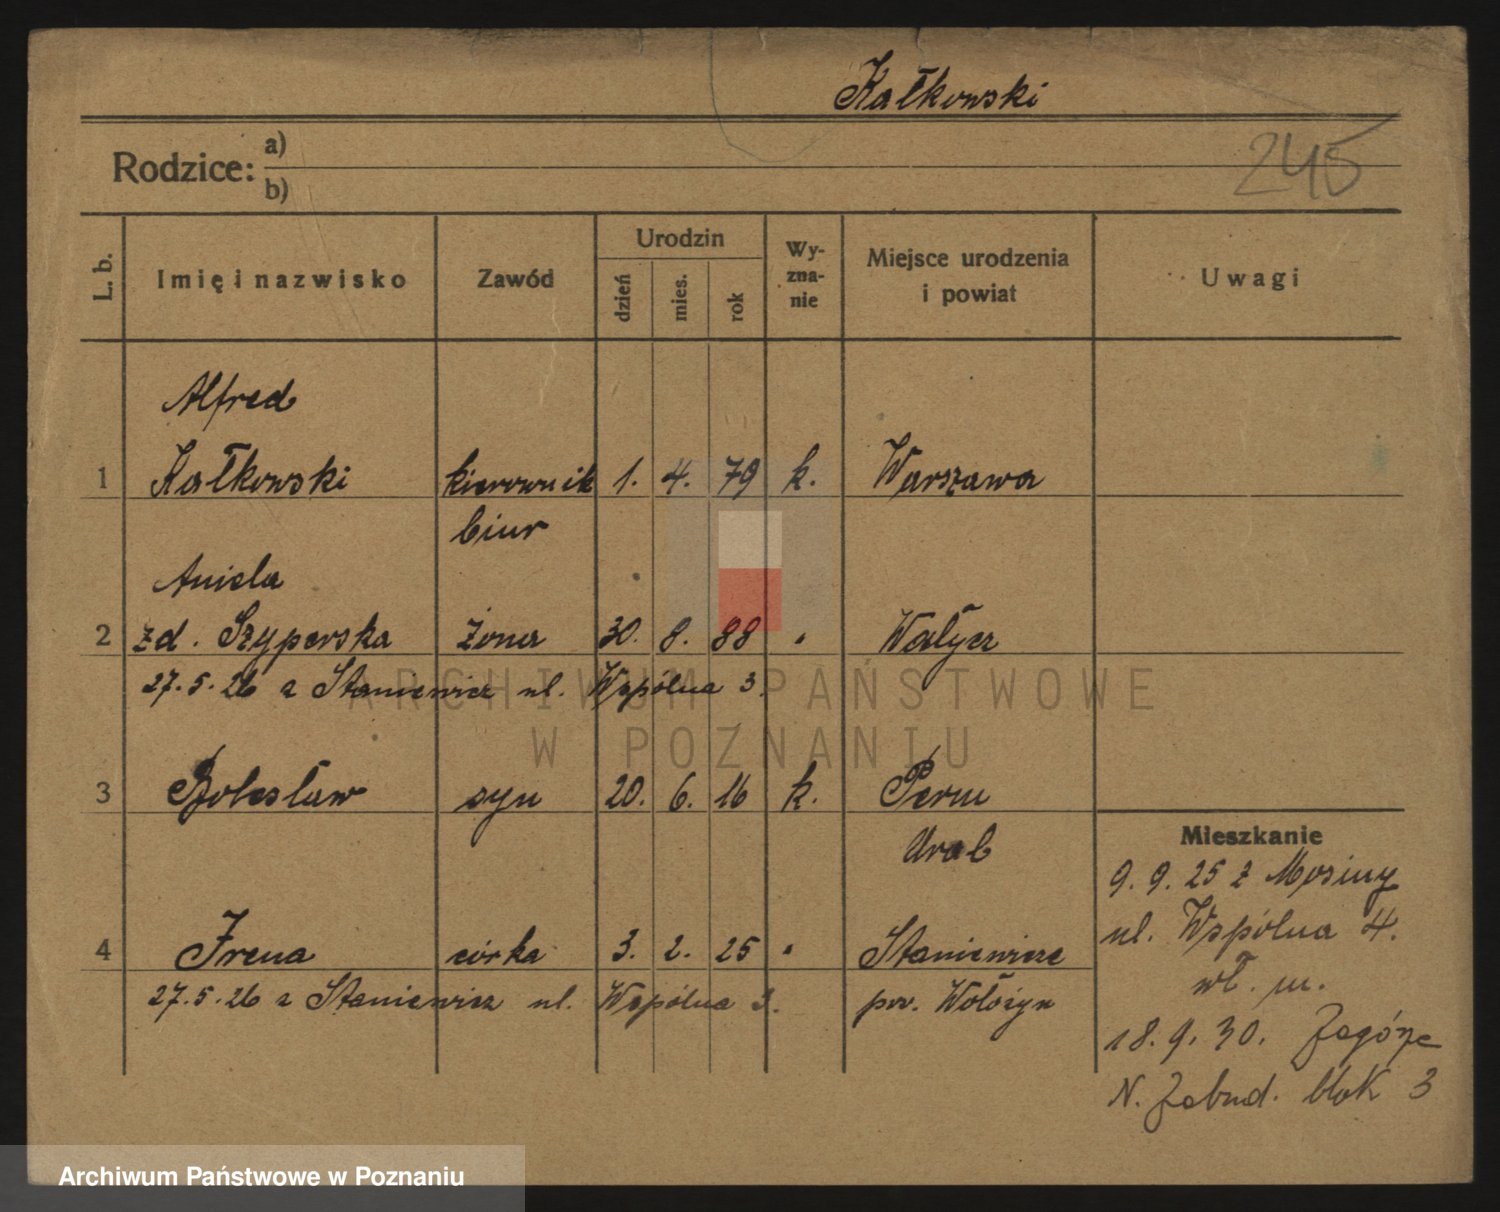 Kałkowski
Rodzice: a)
b)
245
L. b.
Imię i nazwisko
Zawód
Urodzin
dzień
mies.
rok
Wy-
zna-
nie
Miejsce urodzenia
i powiat
Uwagi
Alfred
1 Kałkowski kierownik 1. 4. 79 k. Warszawa
biur
Aniela
2 zd. Szyperska żona 30. 8. 88 " Wałycz
27.5.26 z Staniewicz ul. Wspólna 3.
3 Bolesław syn 20. 6. 16 k. Perm
Ural
4 Irena córka 3. 2. 25 " Staniewicze
27.5.26 z Staniewicz ul. Wspólna 3. pow. Wołożyn
Mieszkanie
9. 9. 25 z Mosiny
ul. Wspólna 4.
wł. m.
18. 9. 30. Zagórze
N. Zabud. blok 3
ARCHIWUM PAŃSTWOWE
W POZNANIU
Archiwum Państwowe w Poznaniu